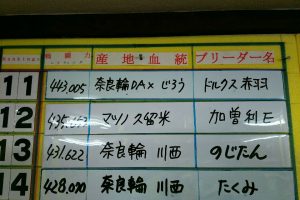 産地血統 ブリーダー名
11 443,005 奈良輪DA×じろう ドルクス赤羽
12 マツノ久留米 加曽利E
13 431,622 奈良輪 川西 のじたん
14 428,070 奈良輪 川西 たくみ